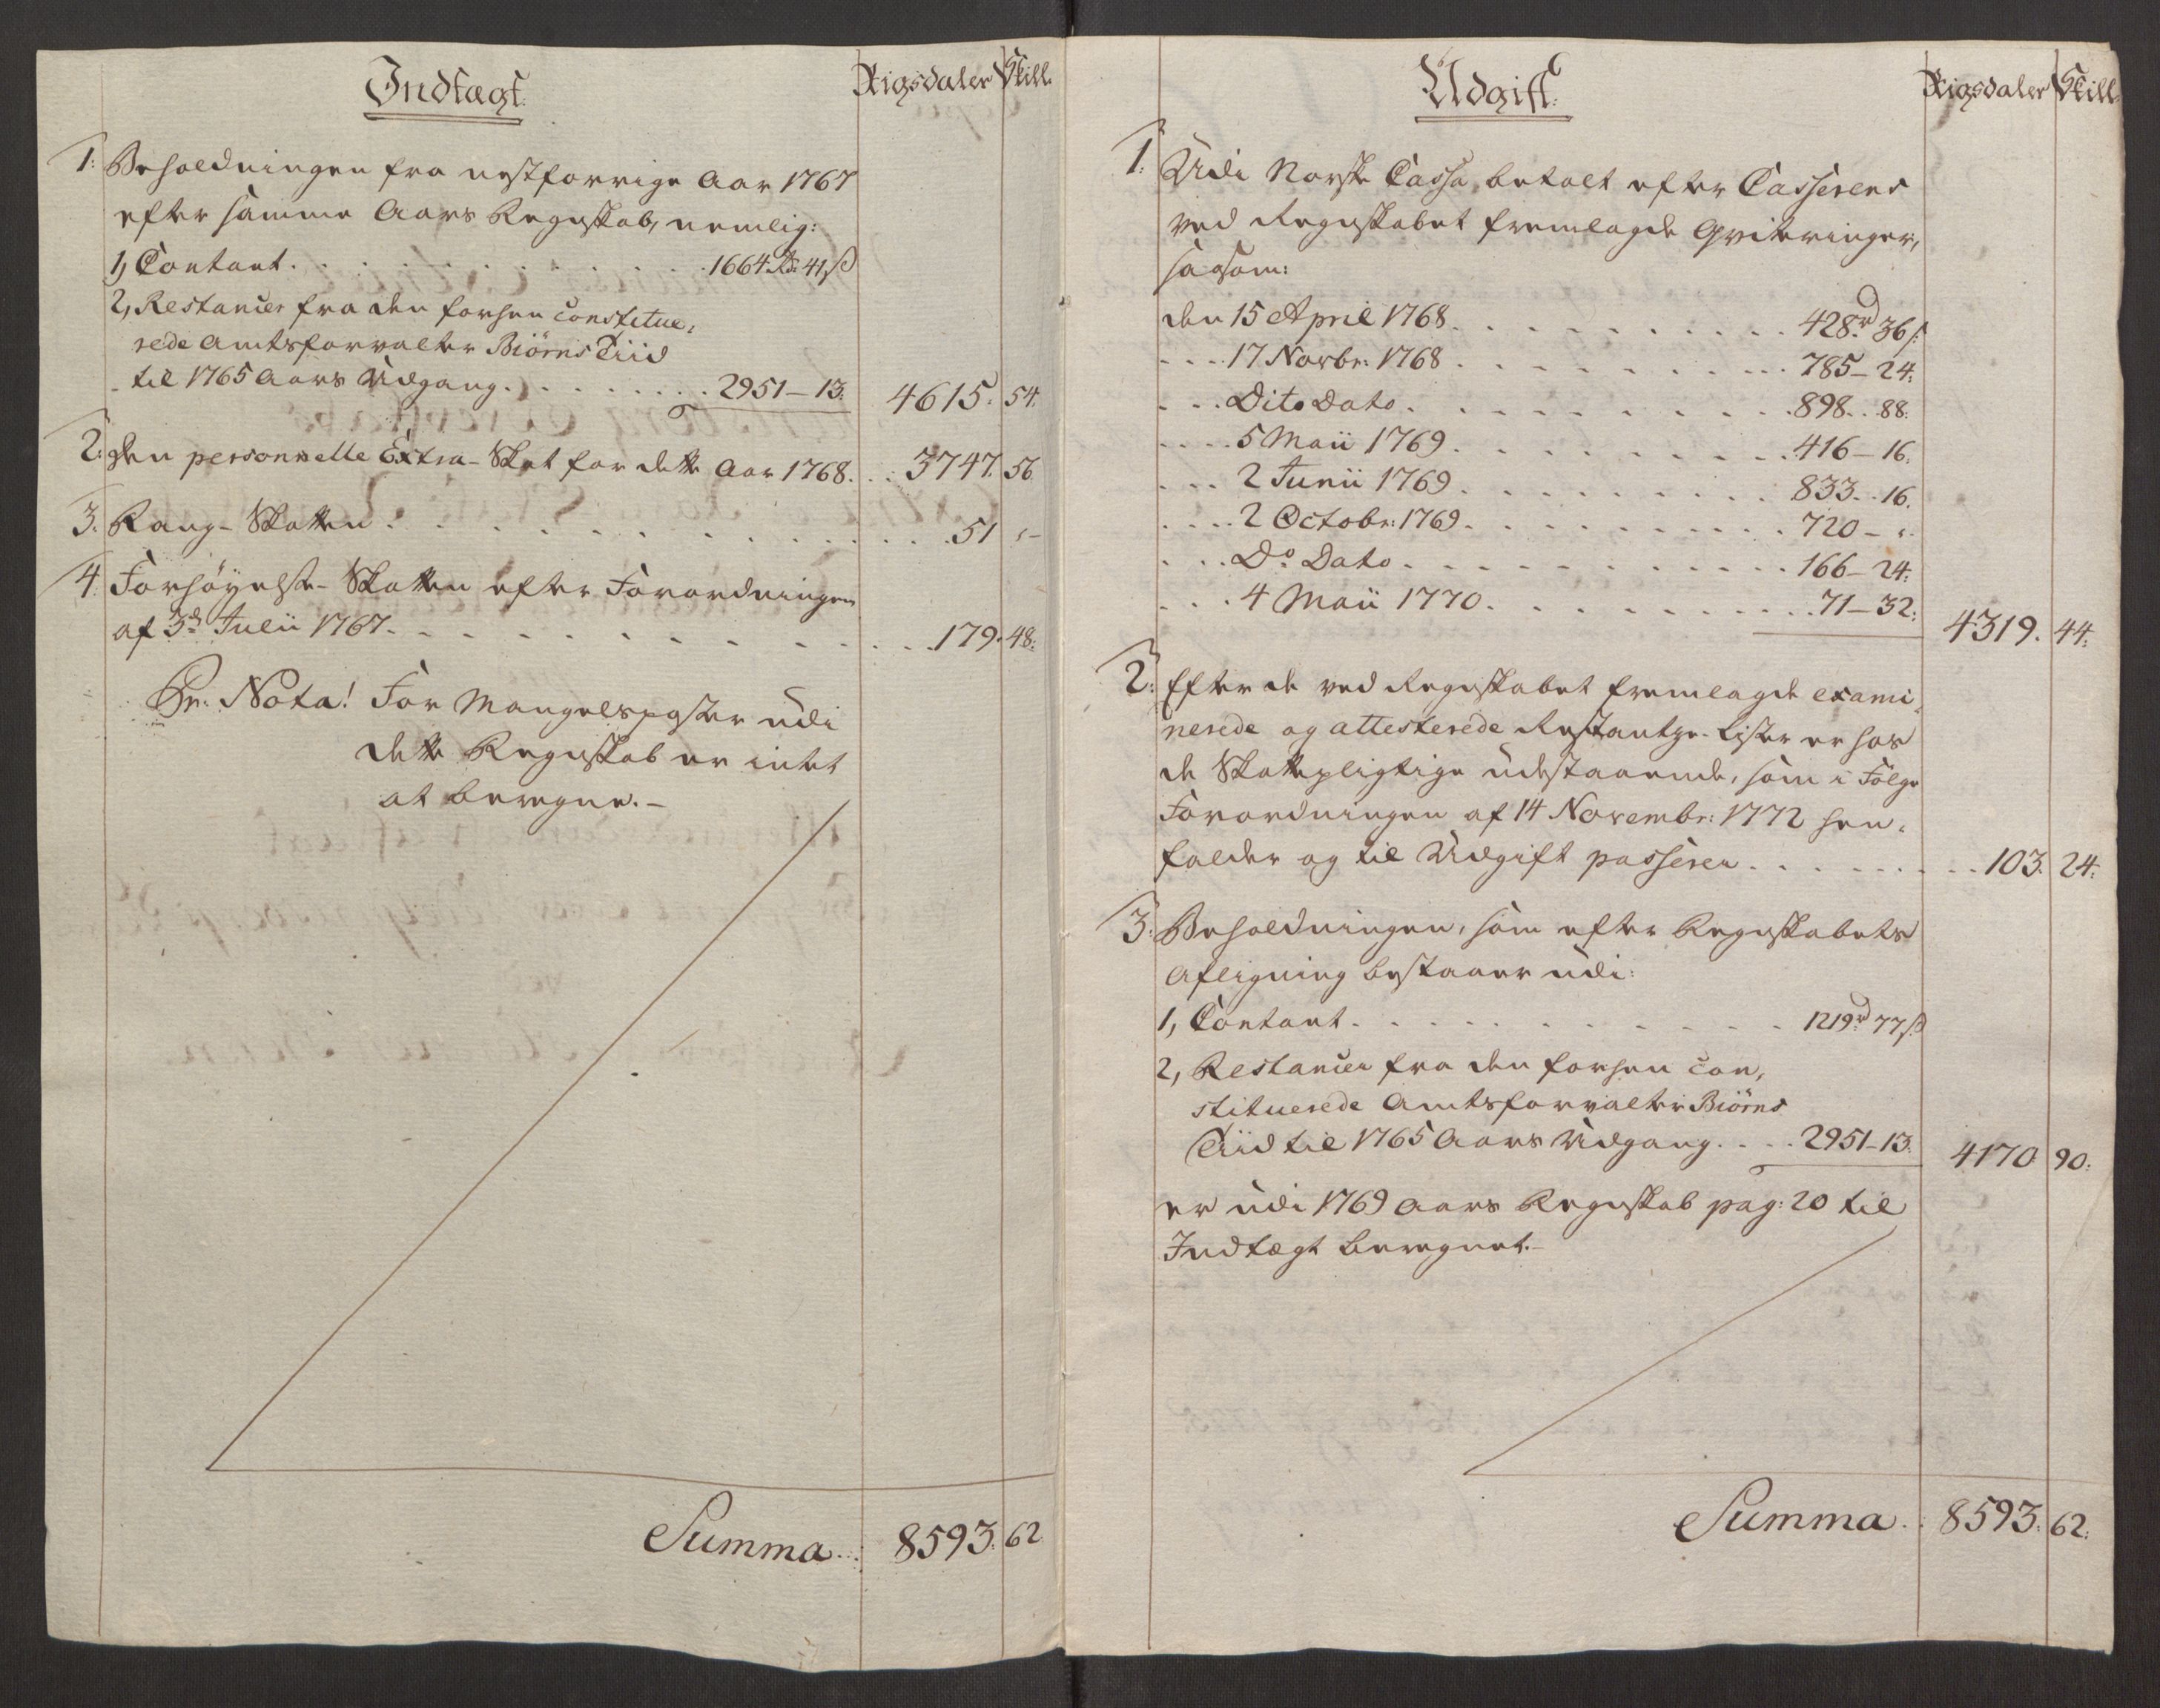 Indtægt.
Rigsdaler Skill.
1. Beholdningen fra nestforrige Aar 1767
efter samme Aars Regnskab, nemlig:
1, Contant . . . . . . . . . . 1664 Rd 41 ß
2, Restancer fra den forhen constitue-
rede Amtsforvalter Biörns Tiid
til 1765 Aars Udgang . . . . . . 2951 – 13. 4615. 54.
2. den personnelle Extra-Skat for dette Aar 1768 . . . 3747. 56
3. Rang-Skatten . . . . . . . . . . . . 51 „ –
4. Forhöyelse-Skatten efter Forordningen
af 3d. Julii 1767 . . . . . . . . . . . 179. 48.
Pr. Nota! For Mangelsposter udi
dette Regnskab er intet
at beregne. –
Summa . . . 8593. 62
Udgift.
Rigsdaler Skill.
1. Udi Norske Cassa betalt efter Casserens
ved Regnskabet fremlagde Qviteringer,
saasom:
den 15 April 1768 . . . . . . . . . 428rd 36 ß
. . . 17 Novbr: 1768 . . . . . . . . . 785 – 24.
. . . Dito Dato . . . . . . . . . . 898 . . 88.
. . . 5 Maii 1769 . . . . . . . . . . 416 – 16.
. . . 2 Junii 1769 . . . . . . . . . 833 . . 16.
. . . 2 Octobr: 1769 . . . . . . . . . 720 – „.
. . . Do Dato . . . . . . . . . . 166 – 24.
. . . 4 Maii 1770 . . . . . . . . . 71 – 32. 4319. 44.
2. Efter de ved Regnskabet fremlagde exami-
nerede og attesterede Restantze-Lister er hos
de Skattepligtige udestaaende, som i Fölge
Forordningen af 14 Novembr: 1772 hen-
falder og til Udgift passerer . . . . . . . 103. 24.
3. Beholdningen, som efter Regnskabets
Afligning bestaaer udi:
1, Contant . . . . . . . . . . . 1219rd 77 ß
2, Restancer fra den forhen con-
stituerede Amtsforvalter Biörns
Tiid til 1765 Aars Udgang . . . . 2951 – 13. 4170 90.
er udi 1769 Aars Regnskab pag: 20 til
Indtægt beregnet. –
Summa . . 8593. 62.